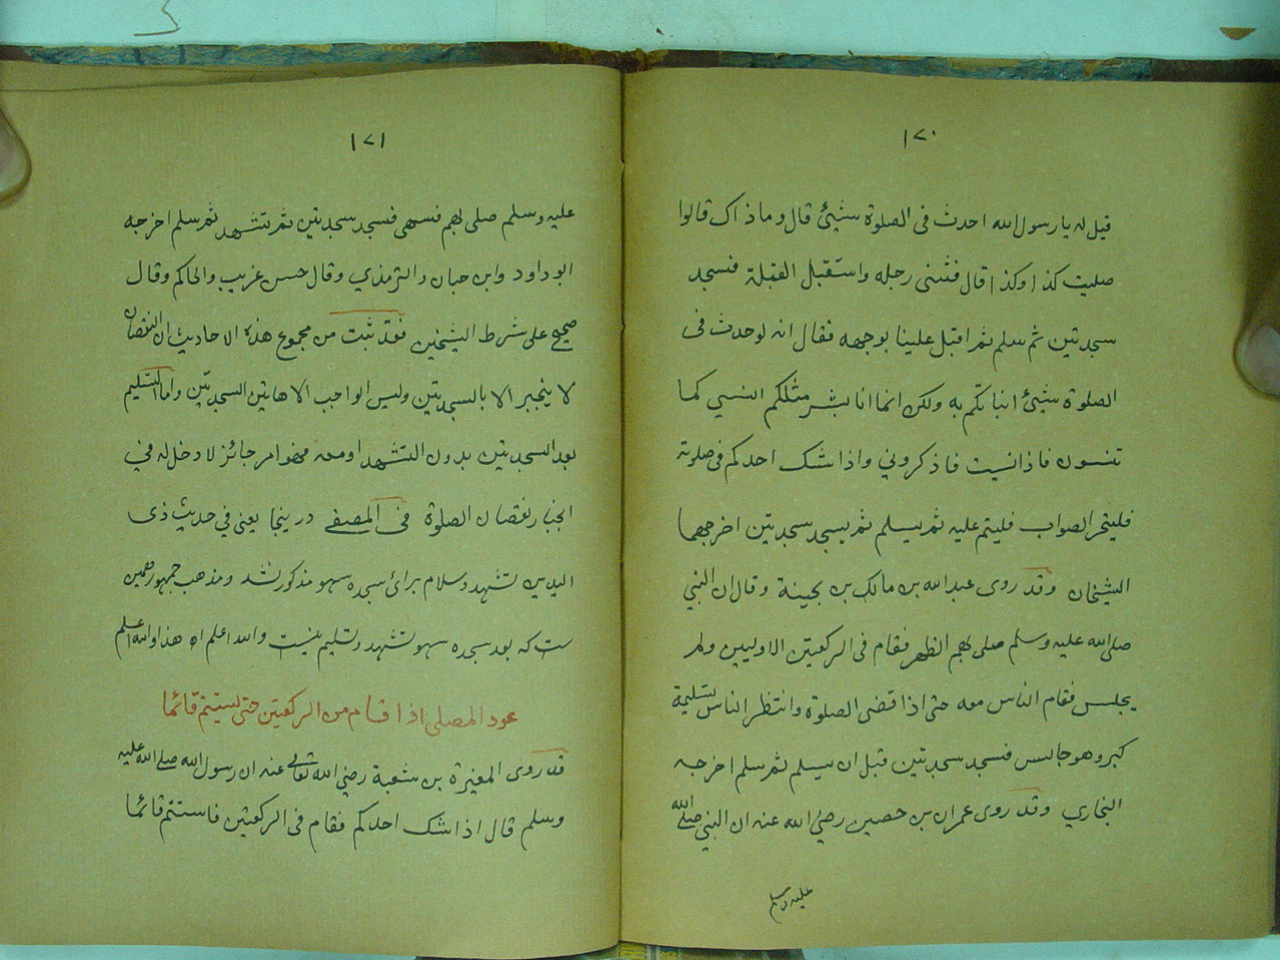 ١٧٠
قيل له يا رسول الله احدث فى الصلوة شيئ قال وما ذاك قالوا
صليت كذا وكذا قال فثنى رجله واستقبل القبلة فسجد
سجدتين ثم سلم ثم اقبل علينا بوجهه فقال انه لو حدث فى
الصلوة شيئ انبأتكم به ولكن انما انا بشر مثلكم انسي كما
تنسون فاذا نسيت فاذكروني واذا شك احدكم فى صلوته
فليتحر الصواب فليتم عليه ثم يسلم ثم يسجد سجدتين اخرجهما
الشيخان وقد روى عبد الله بن مالك بن بحينة وقال ان النبي
صلى الله عليه وسلم صلى بهم الظهر فقام فى الركعتين الاوليين ولم
يجلس فقام الناس معه حتى اذا قضى الصلوة وانتظر الناس تسليمة
كبر وهو جالس فسجد سجدتين قبل ان يسلم ثم سلم اخرجه
البخاري وقد روى عمران بن حصين رضي الله عنه ان النبي صلى الله
عليه وسلم
١٧١
عليه وسلم صلى بهم فسهى فسجد سجدتين ثم تشهد ثم سلم اخرجه
ابو داود وابن حبان والترمذي وقال حسن غريب والحاكم وقال
صحيح على شرط الشيخين فقد ثبت من مجموع هذه الاحاديث ان النقصان
لا ينجبر الا بالسجدتين وليس الواجب الا هاتين السجدتين واما التسليم
بعد السجدتين بدون التشهد او معه فهو امر جائز لا دخل له في
انجبار نقصان الصلوة فى المصفى درينجا يعنى في حديث ذى
اليدين تشهد وسلام براى سجده سهو مذكور نشد ومذهب جمهور همين
ست كه بعد سجده سهو تشهد وتسليم نيست والله اعلم اه هذا والله اعلم
عود المصلى اذا قام من الركعتين حتى يستتم قائما
قد روى المغيرة بن شعبة رضي الله تعالى عنه ان رسول الله صلى الله عليه
وسلم قال اذا شك احدكم فقام فى الركعتين فاستتم قائما